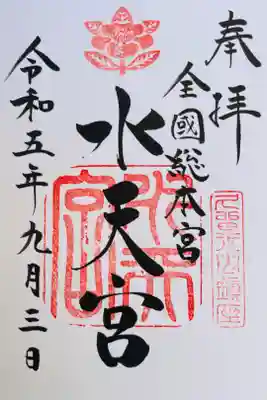 奉拝
全國総本宮
水天宮
令和五年九月三日